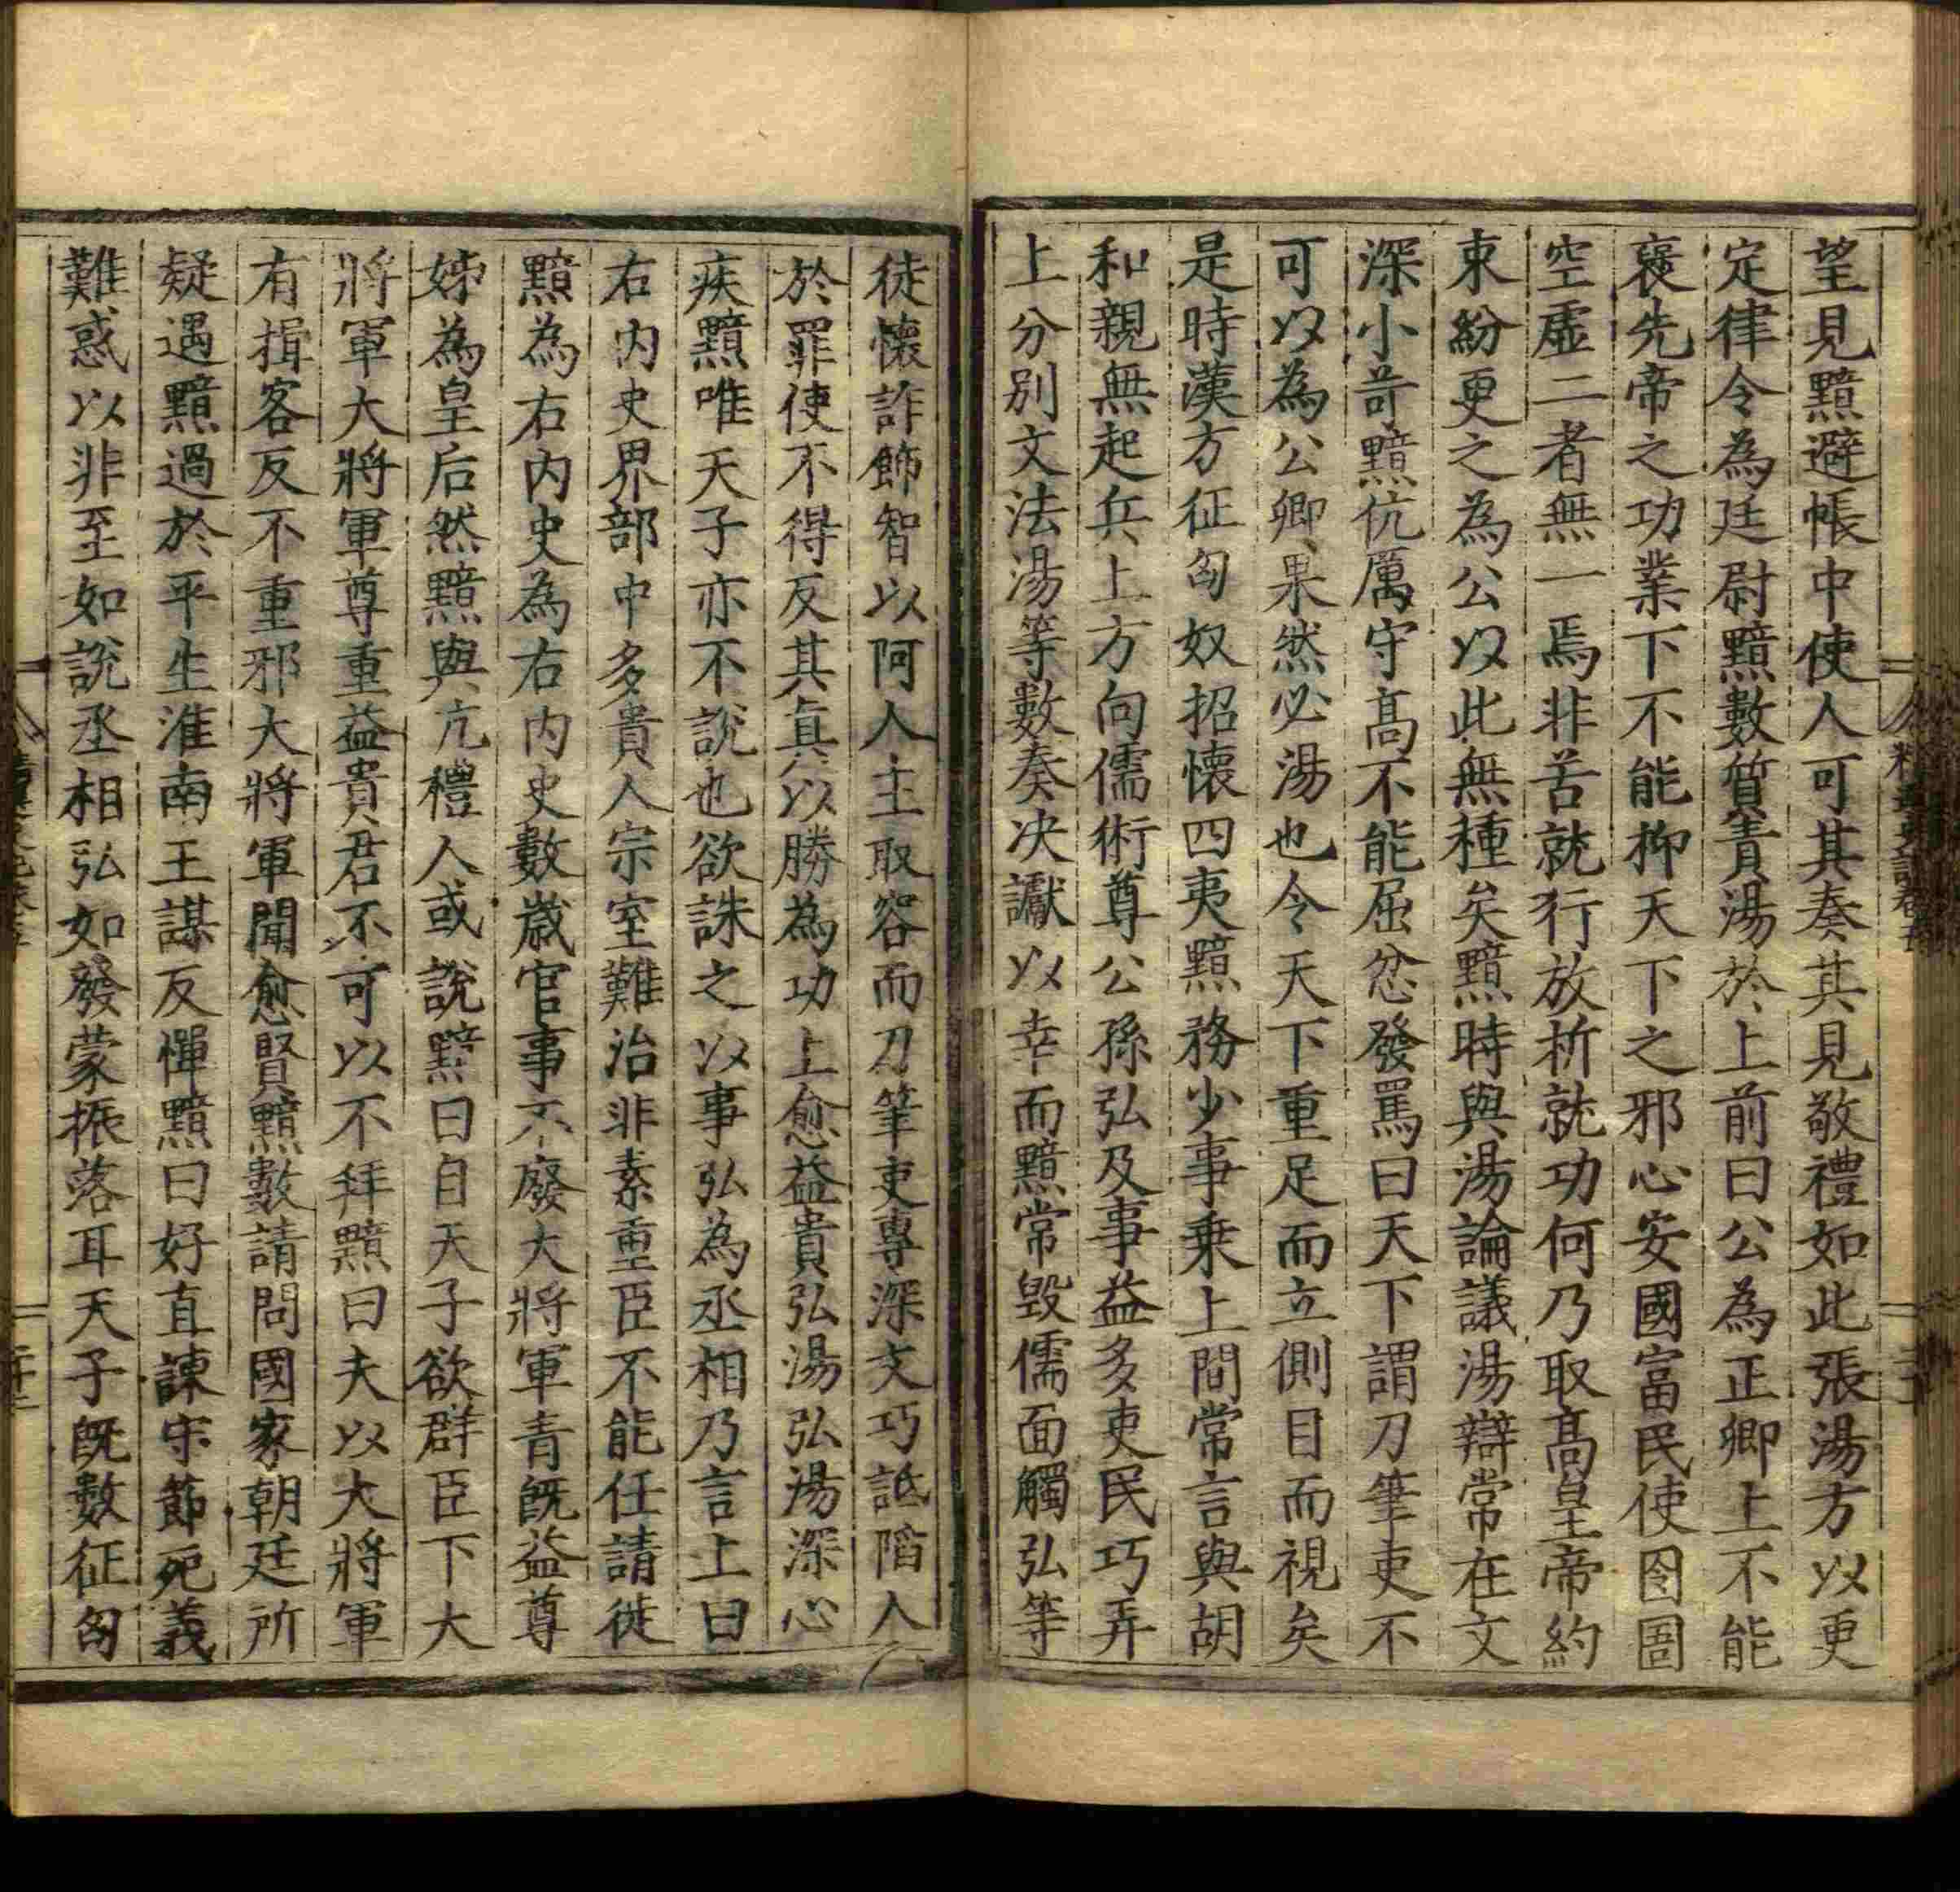 望見黯避帳中使人可其奏其見敬禮如此張湯方以更
定律令為廷尉黯數質責湯於上前曰公為正卿上不能
襃先帝之功業下不能抑天下之邪心安國富民使囹圄
空虛二者無一焉非苦就行放析就功何乃取髙皇帝約
束紛更之為公以此無種矣黯時與湯論議湯辯常在文
深小苛黯伉厲守髙不能屈忿發罵曰天下謂刀筆吏不
可以為公卿果然必湯也令天下重足而立側目而視矣
是時漢方征匈奴招懷四夷黯務少事乗上間常言與胡
和親無起兵上方向儒術尊公孫弘及事益多吏民巧弄
上分別文法湯等數奏决讞以幸而黯常毀儒面觸弘等
徒懷詐飾智以阿人主取容而刀筆吏專深文巧詆陷人
於罪使不得反其真以勝為功上愈益貴弘湯弘湯深心
疾黯唯天子亦不說也欲誅之以事弘為丞相乃言上曰
右內史界部中多貴人宗室難治非素重臣不能任請徙
黯為右內史為右內史數歲官事不廢大將軍青既益尊
姊為皇后然黯與亢禮人或說黯曰自天子欲群臣下大
將軍大將軍尊重益貴君不可以不拜黯曰夫以大將軍
有揖客反不重邪大將軍聞愈賢黯數請問國家朝廷所
疑遇黯過於平生淮南王謀反憚黯曰好直諫守節死義
難惑以非至如說丞相弘如發蒙振落耳天子既數征匈